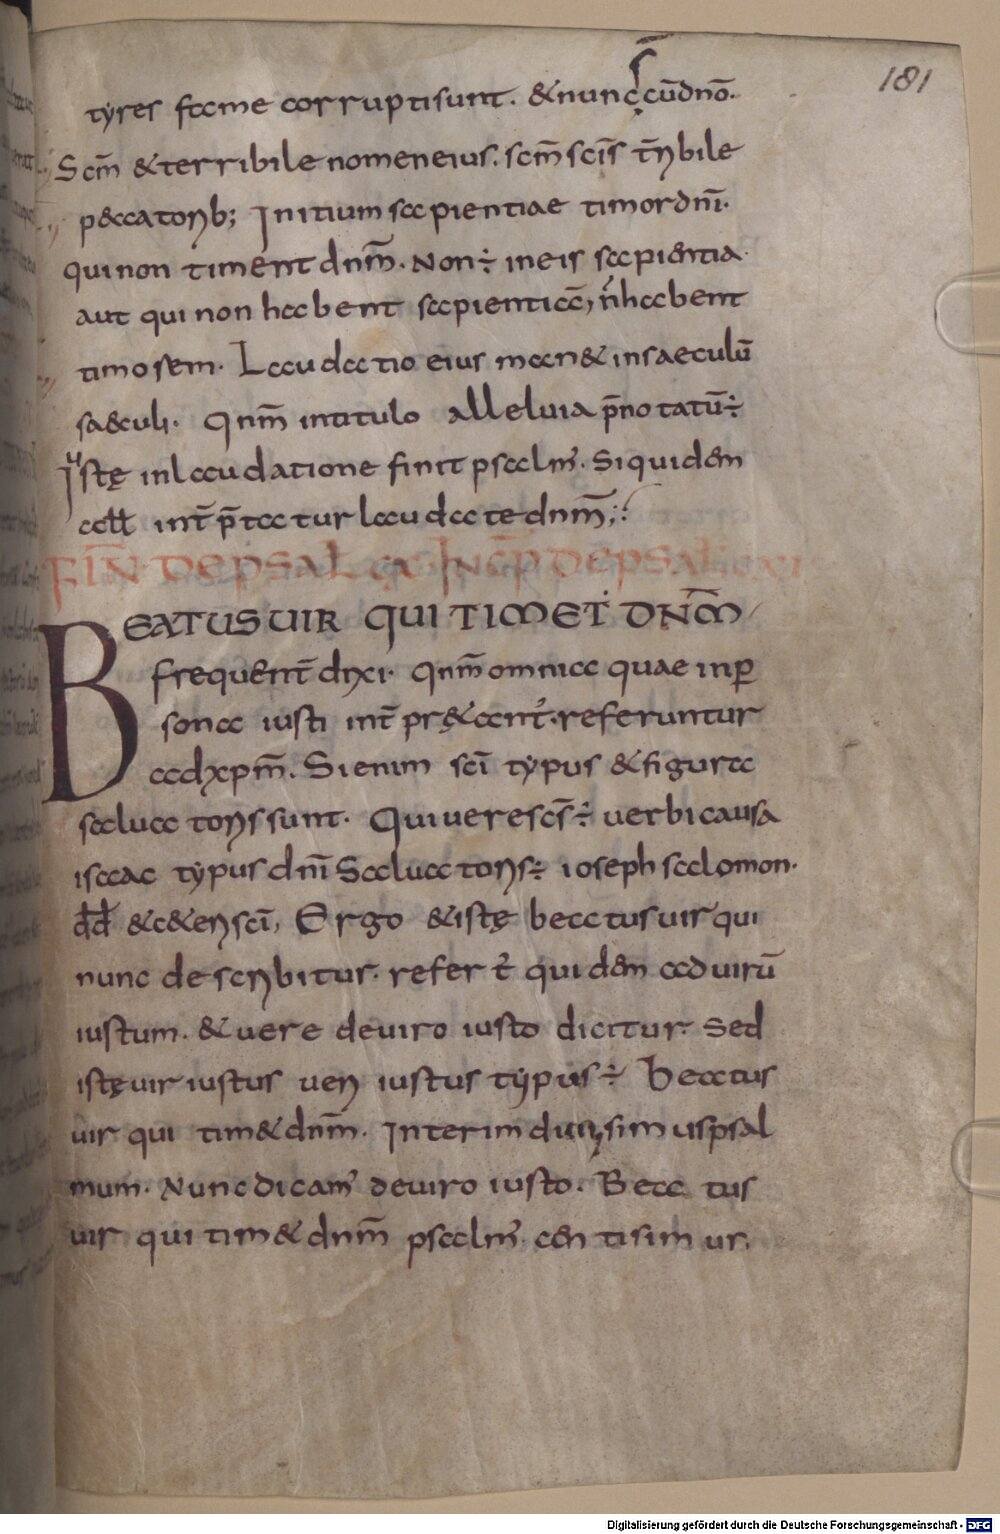 181
tyres fame corruptisunt. &nunc̣ s̄ cū dnō.
Scm̄ &terribile nomeneius. scm̄ scīs t̄rybile
p&catorib; Initium sapientiae timordnī.
quinon timent dnm̄. Non÷ ineis sapientia.
aut qui non habent sapientiā, n̄ habent
timorem. Laudatio eius man& insaeculū
saeculi. Qnm̄ intitulo alleluia p̄notatū÷
Iuste inlaudatione finit psalm'. Siquidem
all int̄p̄tatur laudate dnm̄;
FIN̄. DE PSAL. CX INCP̄ DE PSAL. CXI
BEATUS UIR QUI TIMET DNM̄
frequent̄ dixi. Qnm̄ omnia quae inper
sona iusti int̄ pr&ant'. referuntur
adxpm̄. Si enim scī typus &figura
saluatoris sunt. Qui uere scs̄÷ uerbi causa
isaac typus dnī Saluatoris÷ ioseph salomon.
dd &c&eri scī, Ergo &iste beatus uir qui
nunc describitur. refert' quidem ad uirū
iustum. &uere deuiro iusto dicitur. Sed
iste uir iustus ueri iustus typus÷ Beatus
uir qui tim&dnm̄. Interim dicisimus psal
mum. Nunc dicam' deuiro iusto. Beatus
uir qui tim& dnm̄ psalm' centisimus.
Digitalisierung gefördert durch die Deutsche Forschungsgemeinschaft - DFG